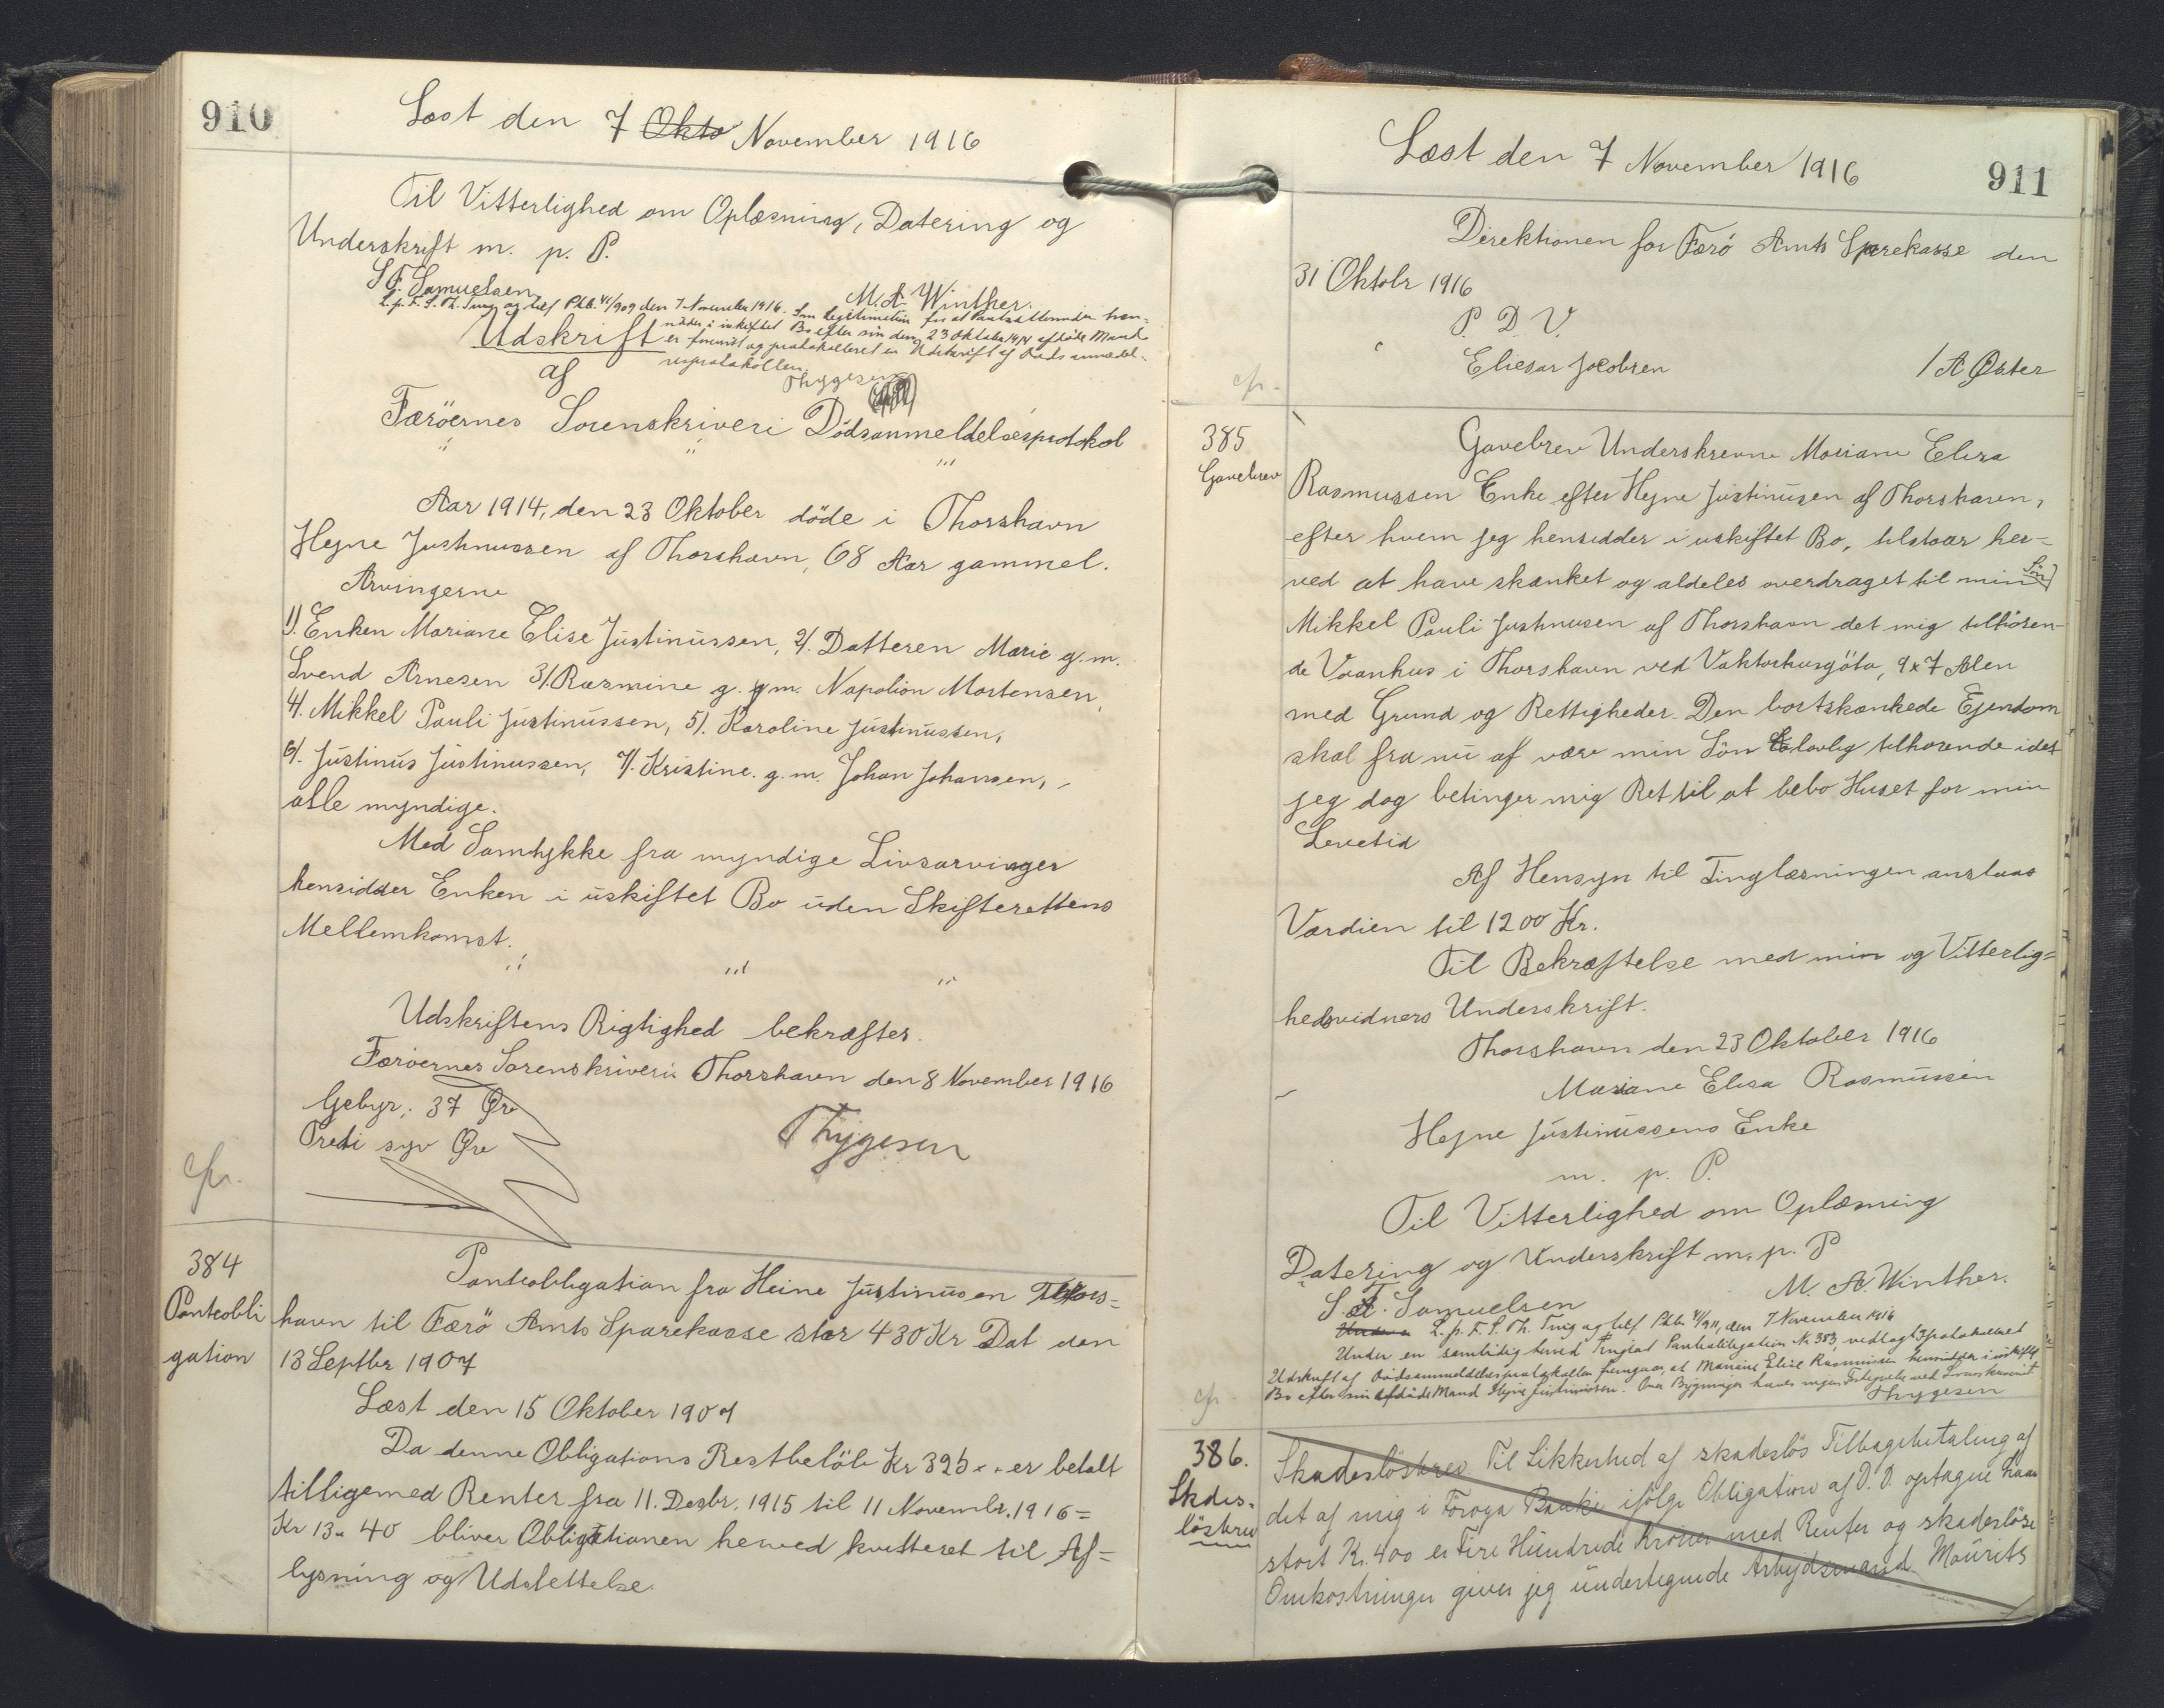 910
Læst den 7 Okto November 1916
Til Vitterlighed om Oplæsning, Datering og
Underskrift m. p. P.
S F. Samuelsen
M. A Winther.
L. p. F. S. Th. Ting og tilf Ptb. 41/909 den 7 November 1916. Som Legitimation for at Pantsætterinden hen-
sidder i uskiftet Bo efter sin den 23 Oktober 1914 afdøde Mand
er fremvist og protokolleret en Udskrift af Dødsanmeldel-
sesprotokollen.
Thygesen
Udskrift
af
Færöernes Sorenskriveri Dödsanmeldelsesprotokol
Aar 1914, den 23 Oktober döde i Thorshavn
Hejne Justinussen af Thorshavn, 68 Aar gammel.
Arvingerne
1). Enken Mariane Elise Justinussen, 2/. Datteren Marie g. m.
Svend Arnesen 3/. Rasmine g. g m. Napolion Mortensen,
4/. Mikkel Pauli Justinussen, 5/. Karoline Justinussen,
6/. Justinus Justinussen, 7/. Kristine. g. m. Johan Johansen,
alle myndige.
Med Samtykke fra myndige Livsarvinger
hensidder Enken i uskiftet Bo uden Skifterettens
Mellemkomst.
Udskriftens Rigtighed bekræfter.
Færöernes Sorenskriveri Thorshavn den 8 November 1916
Gebyr: 37 Øre
Tredi syv Øre
Thygesen
cfr.
384
Panteobli
gation
Panteobligation fra Heine Justinusen Thors=
havn til Færö Amts Sparekasse stor 430 Kr Dat den
13 Septbr 1907
Læst den 15 Oktober 1907
Da denne Obligations Restbelöb Kr 325 " " er betalt
tilligemed Renter fra 11. Desbr. 1915 til 11 Novembr. 1916 =
Kr 13 " 40 bliver Obligationen herved kvitteret til Af=
lysning og Udslettelse.
Læst den 7 November 1916
911
Direktionen for Færö Amts Sparekasse den
31 Oktobr 1916
P. D. V.
Eliesar Jacobsen
/ A Øster
cfr.
385
Gavebrev
Gavebrev Underskrevne Mariane Elisa
Rasmussen Enke efter Hejne Justinusen af Thorshavn,
efter hvem jeg hensidder i uskiftet Bo, tilstaar her=
ved at have skænket og aldeles overdraget til min Sön
Mikkel Pauli Justinusen af Thorshavn det mig tilhören-
de Vaanhus i Thorshavn ved Vaktarhusgöta, 9 x 7 Alen
med Grund og Rettigheder. Den bortskænkede Ejendom
skal fra nu af være min Sön lovlig tilhörende idet
jeg dog betinger mig Ret til at bebo Huset for min
Levetid
Af Hensyn til Tinglæsningen anslaas
Værdien til 1200 Kr.
Til Bekræftelse med min og Vitterlig=
hedsvidners Underskrift.
Thorshavn den 23 Oktober 1916
Mariane Elisa Rasmussen
Hejne Justinussens Enke
m. p. P.
Til Vitterlighed om Oplæsning
Datering og Underskrift m. p. P
S. F. Samuelsen
M. A. Winther.
Under L. p. F. S. Th. Ting og tilf Ptb. 41/911, den 7 November 1916
Under en samtidig hermed tinglæst Panteobligation No 383, vedlagt og protokolleret
Udskrift af Dødsanmeldelsesprotokollen fremgaar, at Mariane Elise Rasmussen hensidder i uskiftet
Bo efter sin afdøde Mand Hejne Justinussen. Om Bygningen haves ingen Oplysning ved Sorenskriveriet
Thygesen
cfr
386.
Skades-
löskrev
Skadeslöskrev Til Sikkerhed af skadeslös Tilbagebetaling af
det af mig i Föroya Banki ifölge Obligation af D. D. optagne Laan
stort Kr. 400 er Fire Hundrede Kroner med Renter og skadeslöse
Omkostninger giver jeg undertegnede Arbejdsmand Mourits